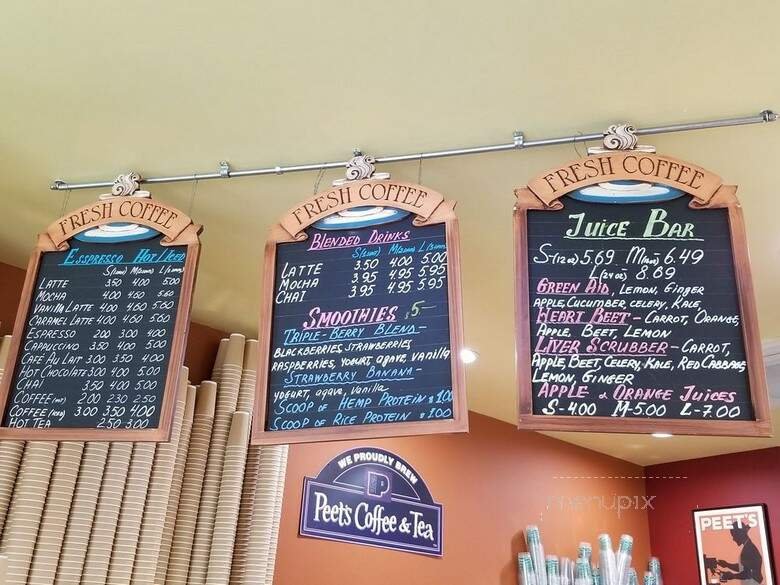 FRESH COFFEE
ESSPRESSO HOT/ICED
LATTE 3.50 4.00 5.00
MOCHA 4.00 4.60 5.60
VANILLA LATTE 4.00 4.60 5.60
CARAMEL LATTE 4.00 4.60 5.60
ESPRESSO 2.00 3.00 4.00
CAPPUCCINO 3.50 4.00 5.00
CAFÉ AU LAIT 3.00 3.50 4.00
HOT CHOCOLATE 3.00 4.00 5.00
CHAI 3.50 4.00 5.00
COFFEE 2.00 2.30 2.50
COFFEE 3.00 3.50 4.00
HOT TEA 2.50 3.00
FRESH COFFEE
BLENDED DRINKS
LATTE 3.50 4.00 5.00
MOCHA 3.95 4.95 5.95
CHAI 3.95 4.95 5.95
SMOOTHIES 5-
TRIPLE-BERRY BLEND-
BLACKBERRIES, STRAWBERRIES
RASPBERRIES, YOGURT, agave, Vanilla
STRAWBERRY BANANA-
YOGURT, agave, Vanilla
SCOOP OF HEMP PROTEIN $1.00
SCOOP OF RICE PROTEIN $1.00
FRESH COFFEE
JUICE BAR
S(12 oz) 5.69 M(16 oz) 6.49
L(24 oz) 8.69
GREEN AID, LEMON, GINGER
APPLE, CUCUMBER, CELERY, KALE,
HEART BEET - CARROT, ORANGE,
APPLE, BEET, LEMON
LIVER SCRUBBER - CARROT,
APPLE, BEET, CELERY, KALE, RED CABBAGE
LEMON, GINGER
APPLE & ORANGE JUICES
S-4.00 M-5.00 L-7.00
WE PROUDLY BREW
P
Peet's Coffee & Tea
menupix
PEET'S